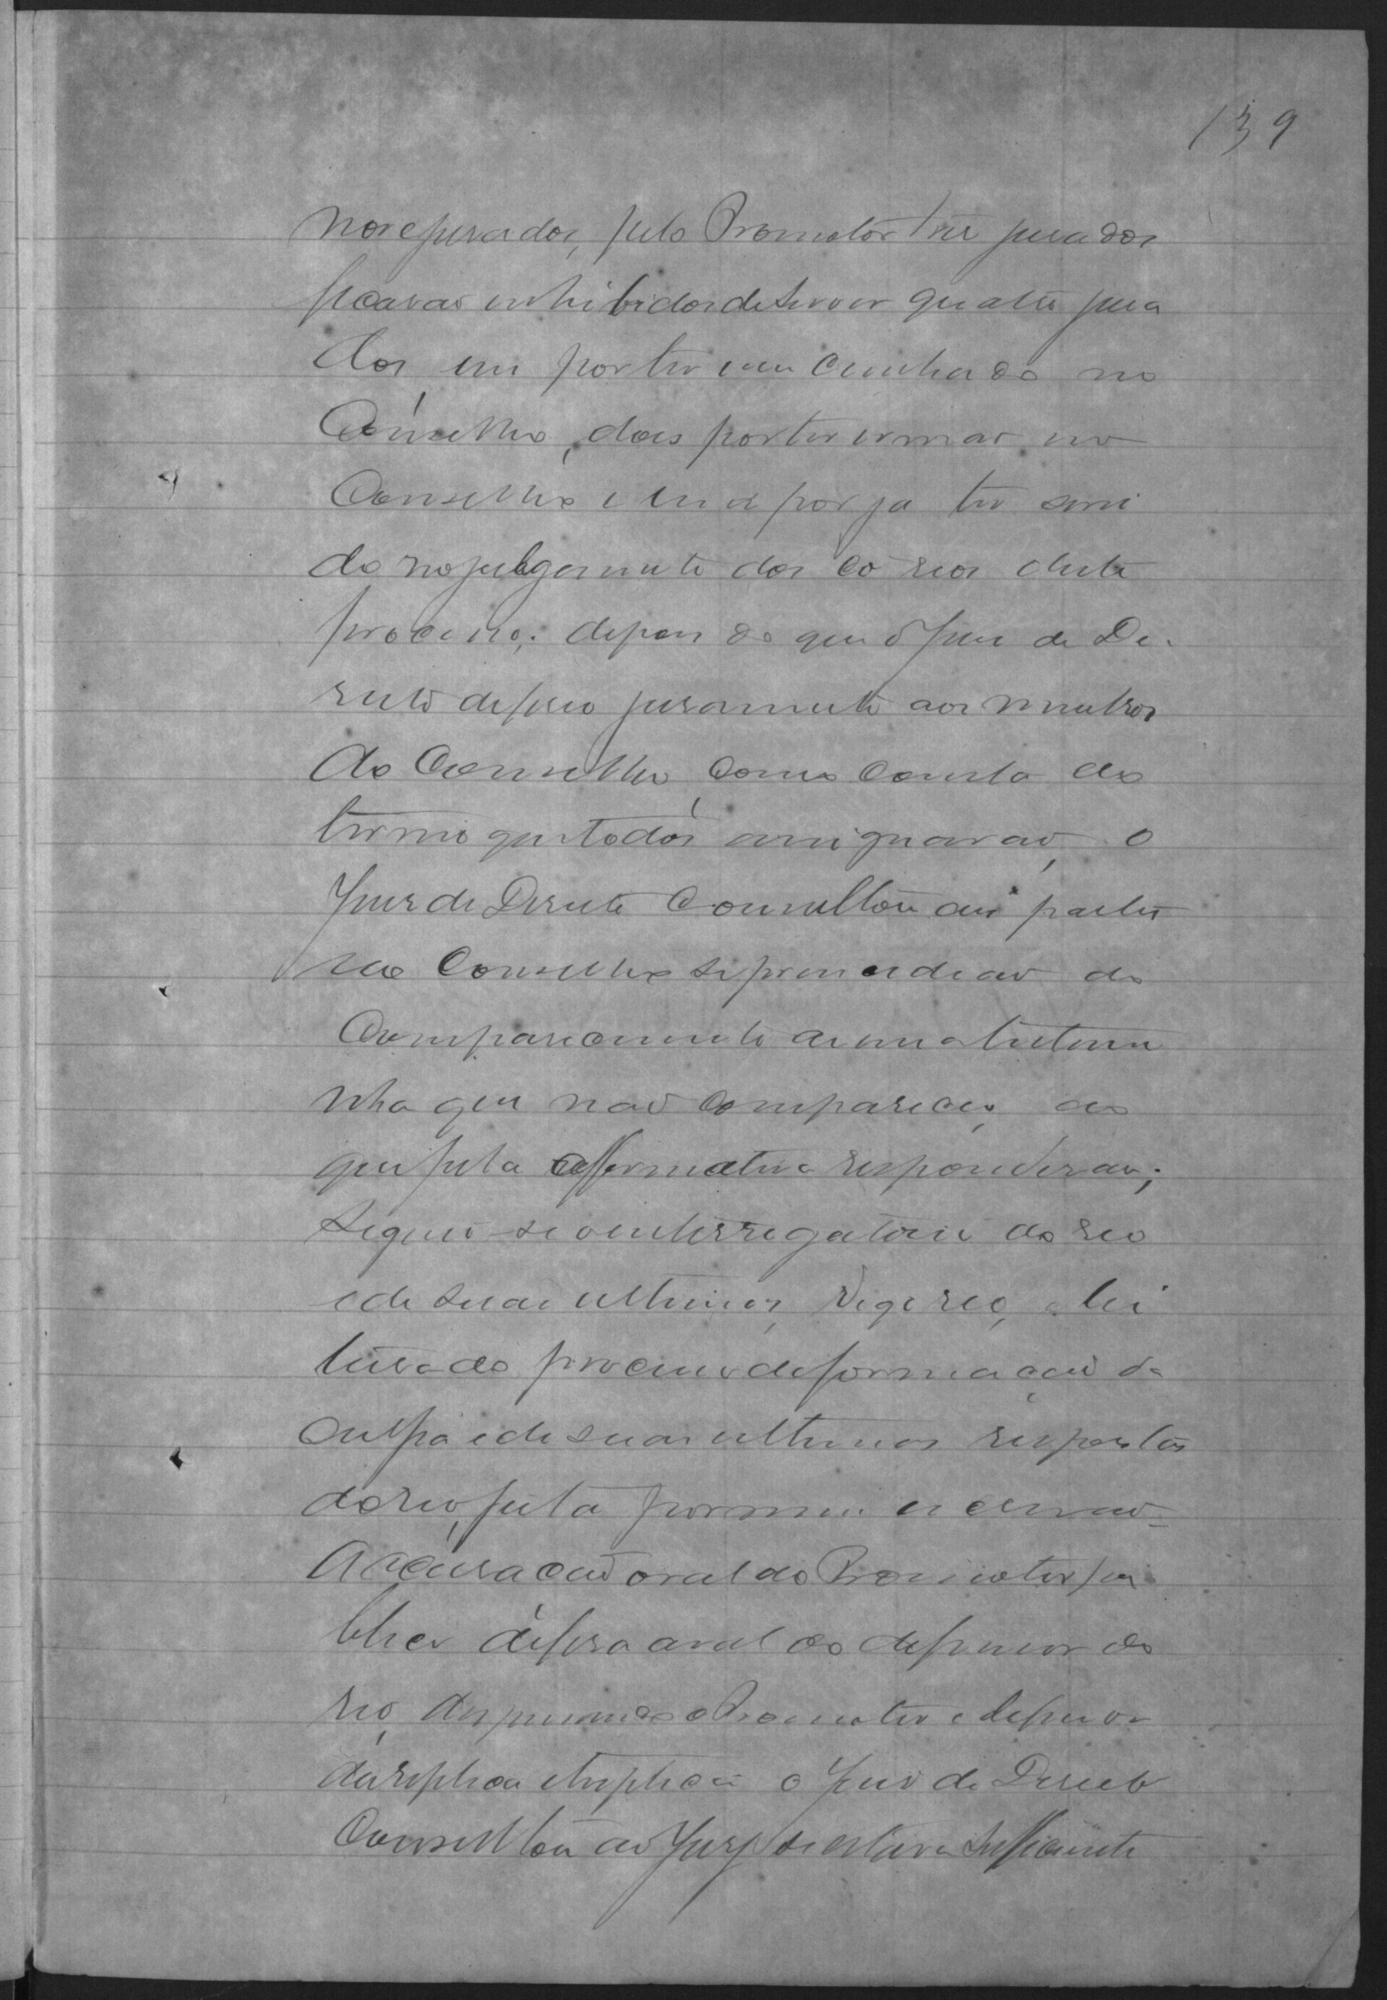 139
nove jurados, pelo Promotor tres jurados
ficarão inhibidos de servir quatro jura
dos, um por ter um cunhado no
Conselho, dois por ter irmão no
Conselho e um por ja ter servi
do no julgamento dos có reos deste
processo; depois do que o Juiz de Di-
reito deferio juramento aos membros
do Conselho, como consta do
termo que todos assignarão, o
Juiz de Direito Consultou as partes
e ao Conselho se prescindião do
Comparecimento de uma testemu
nha que não compareceo, ao
que pela affirmativa responderão;
seguio-se o enterrogatorio do reo
e de suas ultimas, digo reo, a lei
tura do processo de formação da
culpa e de suas ultimas respostas
do reo, feita por mim escrivão
Accusação oral do Promotor pu
blico defesa oral do defensor do
reo, dispensando o Promotor e defensor
da replica e treplica o Juiz de Direito
Consultou ao Jury se estava sufficiente